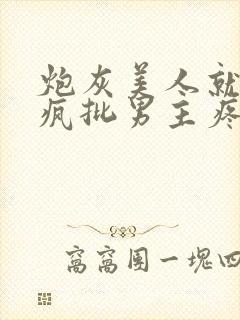 炮灰美人就
疯批男主疼
窝窝团一塊四